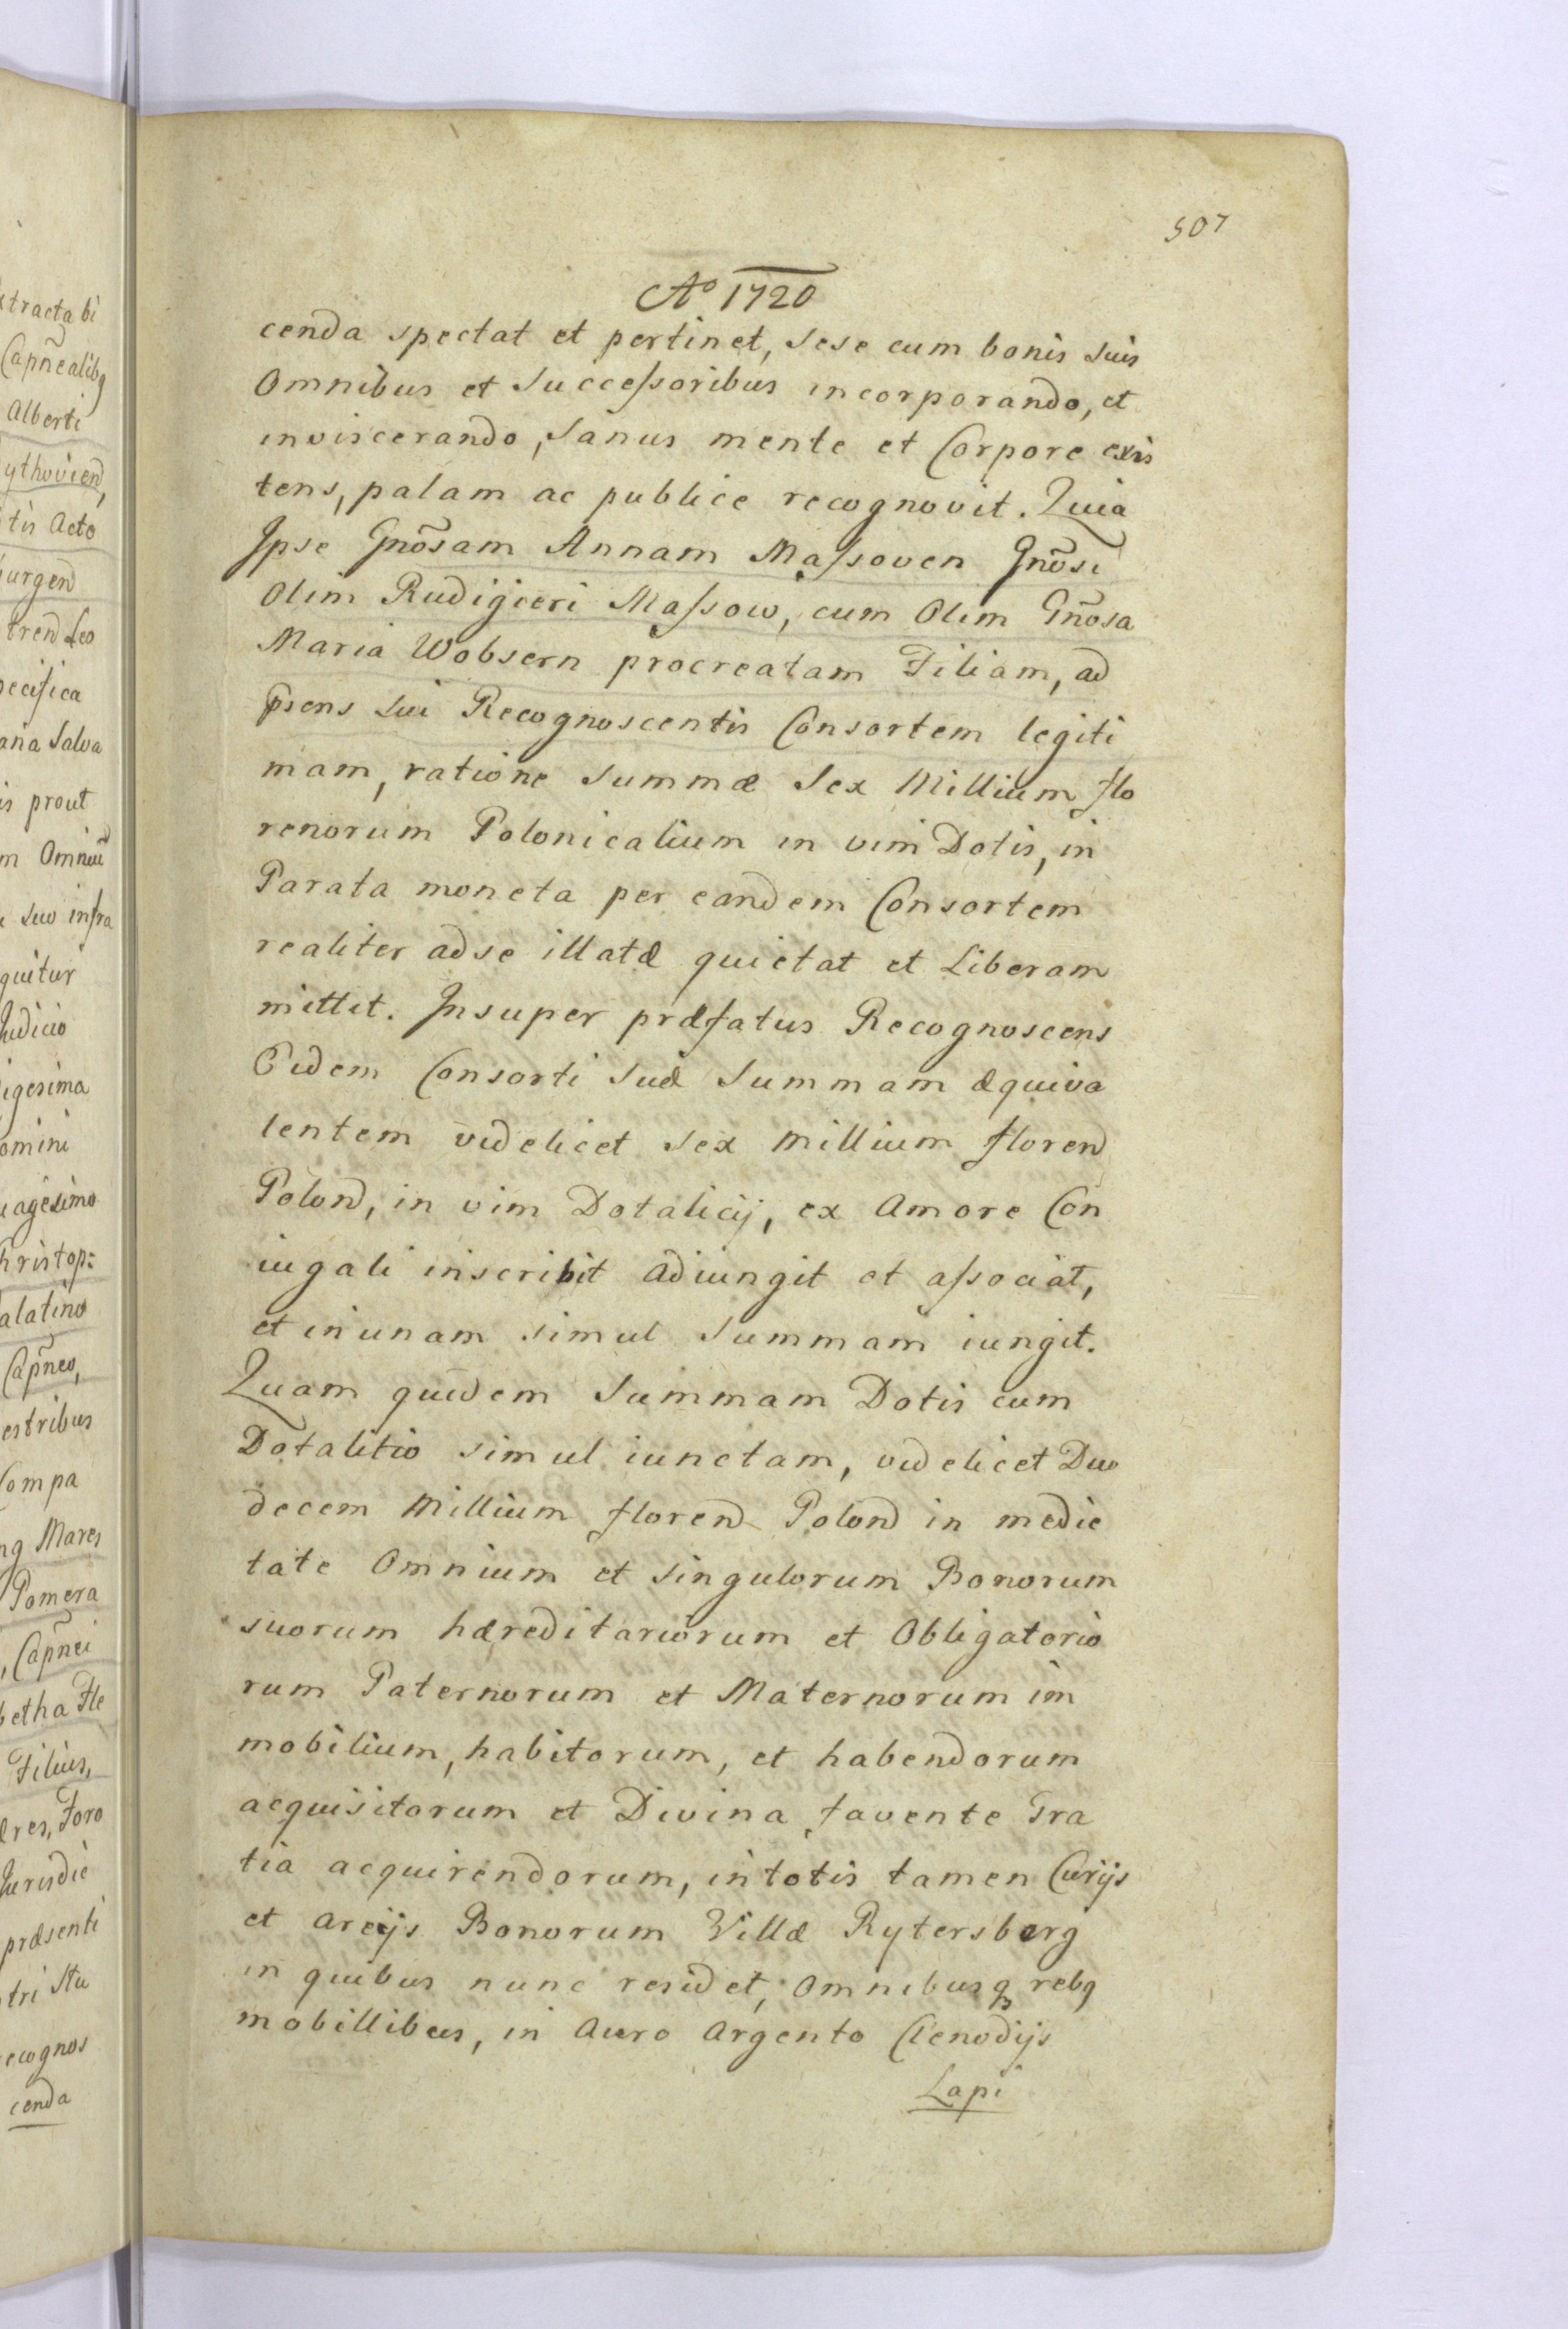 xtracta bi
Capn̄ealibq
Alberti
ythovien,
tis Acto
urgen
tren Leo
pecifica
ana Salva
is prout
m Omniū
suo infra
quitur
Judicio
igesima
omini
uagesimo
hristop:
alatino
Capn̄eo,
estribus
Compa
ng Mares
Pomera
, Capn̄ei
betha Fle
Filius,
eres, Foro
Jurisdic
præsenti
tri Stu
ecognos
cenda
507
Aº 1720
cenda spectat et pertinet, sese cum bonis suis
Omnibus et Successoribus incorporando, et
inviscerando, Sanus mente et Corpore exis
tens, palam ac publice recognovit. Quia
Ipse Gnõsam Annam Massoven Gnõsi
Olim Rudigieri Massow, cum Olim Gnõsa
Maria Wobsern procreatam Filiam, ad
p̃sens sui Recognoscentis Consortem legiti
mam, ratione Summæ Sex Millium flo
renorum Polonicalium in vim Dotis, in
Parata moneta per eandem Consortem
realiter ad se illatæ quietat et Liberam
mittit. Insuper præfatus Recognoscens
Eidem Consorti suæ Summam æquiva
lentem videlicet Sex Millium floren
Polon, in vim Dotalicij, ex Amore Con
iugali inscribit adiungit et associat,
et in unam simul Summam iungit.
Quam quidem Summam Dotis cum
Dotalitio simul iunctam, videlicet Duo
decem Millium floren Polon in medie
tate Omnium et singulorum Bonorum
suorum hæreditariorum et Obligatorio
rum Paternorum et Maternorum im
mobilium, habitorum, et habendorum
acquisitorum et Divina favente Gra
tia acquirendorum, in totis tamen Curijs
et areijs Bonorum Villæ Rytersberg
in quibus nunc residet, Omnibusq rebq
mobillibus, in Auro Argento Clenodijs
Lapi